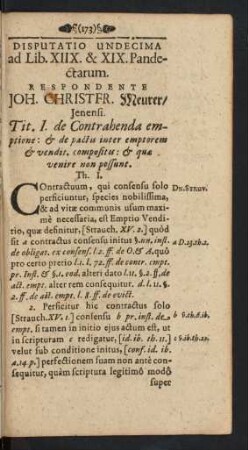 (173)
DISPUTATIO UNDECIMA
ad Lib. XIIX. & XIX. Pande-
ctarum.
RESPONDENTE
JOH. CHRISTFR. Meurer/
Jenensi.
Tit. I. de Contrahenda em-
ptione: & de pactis inter emptorem
& vendit. compositis: & quæ
venire non possunt.
Th. I.
COntractuum, qui consensu solo
perficiuntur, species nobilissima,
& ad vitæ communis usum maxi-
mè necessaria, est Emptio Vendi-
tio, quæ definitur, [Strauch. XV. 2.] quòd
sit a contractus consensu initus §. un. inst.
de obligat. ex consens. l. 2. ff. de O. & A. quô
pro certo prerio l. 1. l. 72. ff. de contr. emt.
pr. Inst. & §. 1. eod. alteri dato l. 11. §. 2. ff. de
act. empt. alter rem consequitur. d. l. 11. §.
2. ff. de act. empt. l. 8. ff. de evict.
2. Perficitur hic contractus solo
[Strauch. XV. 1.] consensu b pr. inst. de-
empt. si tamen in initio ejus actum est, ut
in scripturam c redigatur, [id. ib. th. 11.]
velut sub conditione initus, [conf. id. ib.
a. 14. p.] perfectionem suam non antè con-
sequitur, quàm scriptura legitimô modô
super
DN. STRUV.
a D. 23. th. 2.